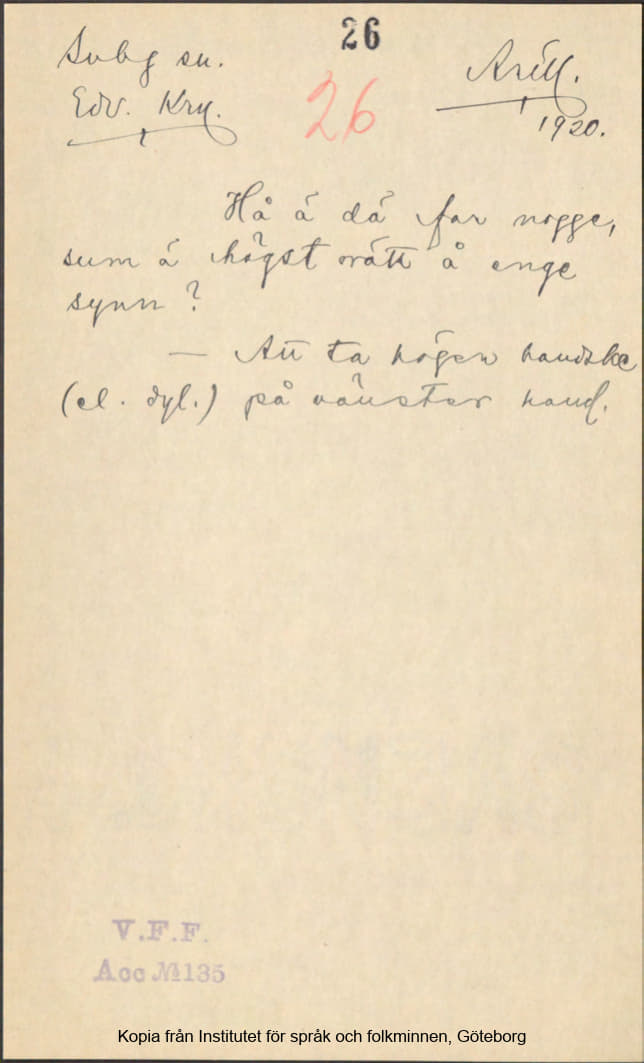 26
Svbg sn.
Edv. Kry.
26
1920.
Hå ä dä far nogge,
sum ä högst orätt å enge
synn?
— Att ta högen handske
(el. dyl.) på vänster hand.
V.F.F.
Acc №135
Kopia från Institutet för språk och folkminnen, Göteborg